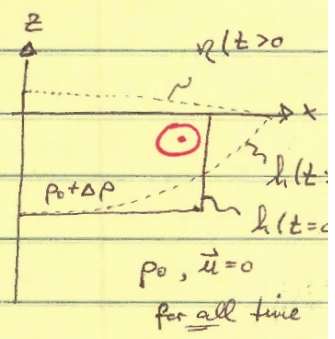 z
η(t>0
x
ρ₀+Δρ
h(t>
h(t=0
ρ₀, u⃗=0
for all time